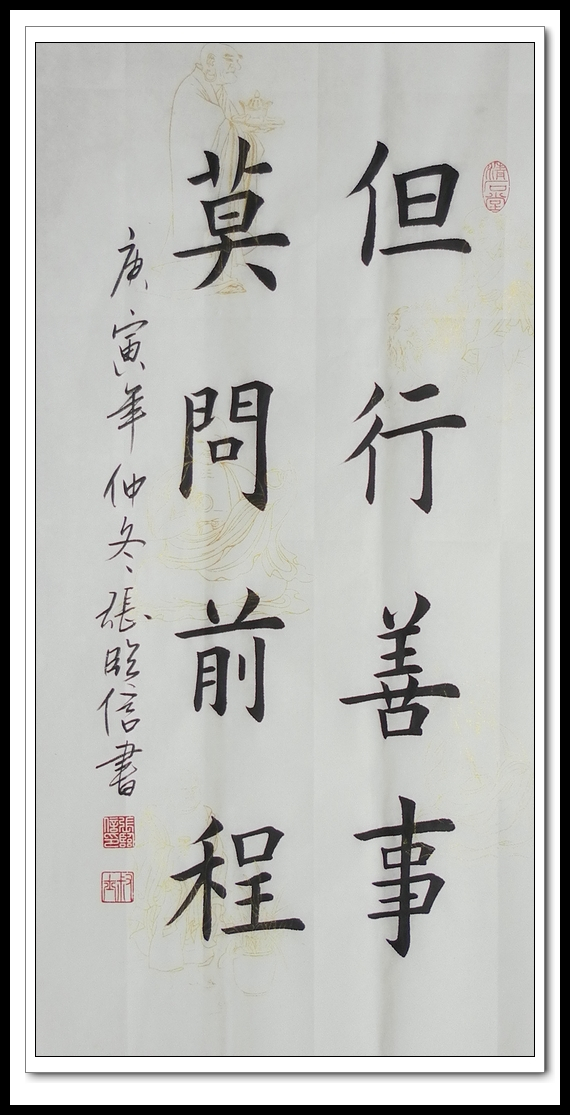 但行善事
莫問前程
庚寅年仲冬張临信書